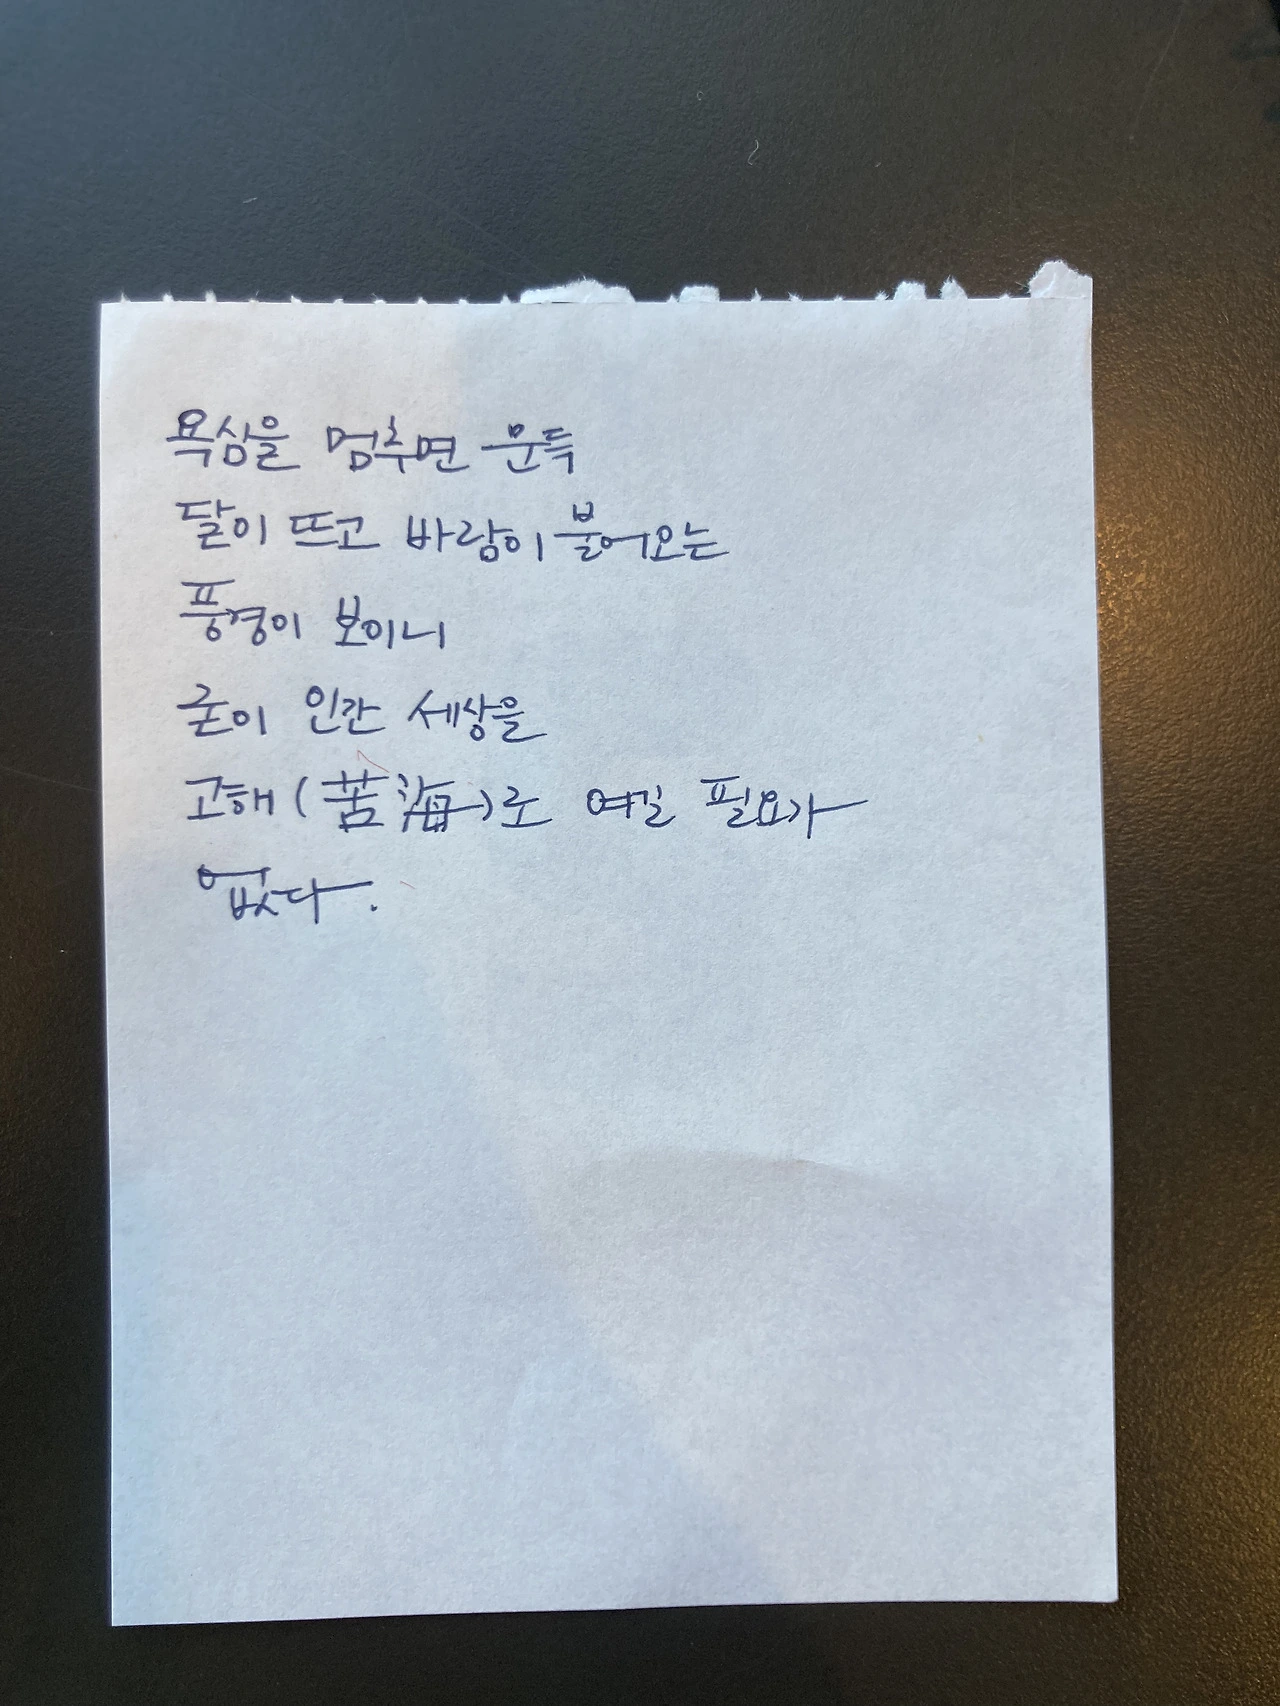 욕심을 멈추면 문득
달이 뜨고 바람이 불어오는
풍경이 보이니
굳이 인간 세상을
고해(苦海)로 여길 필요가
없다.